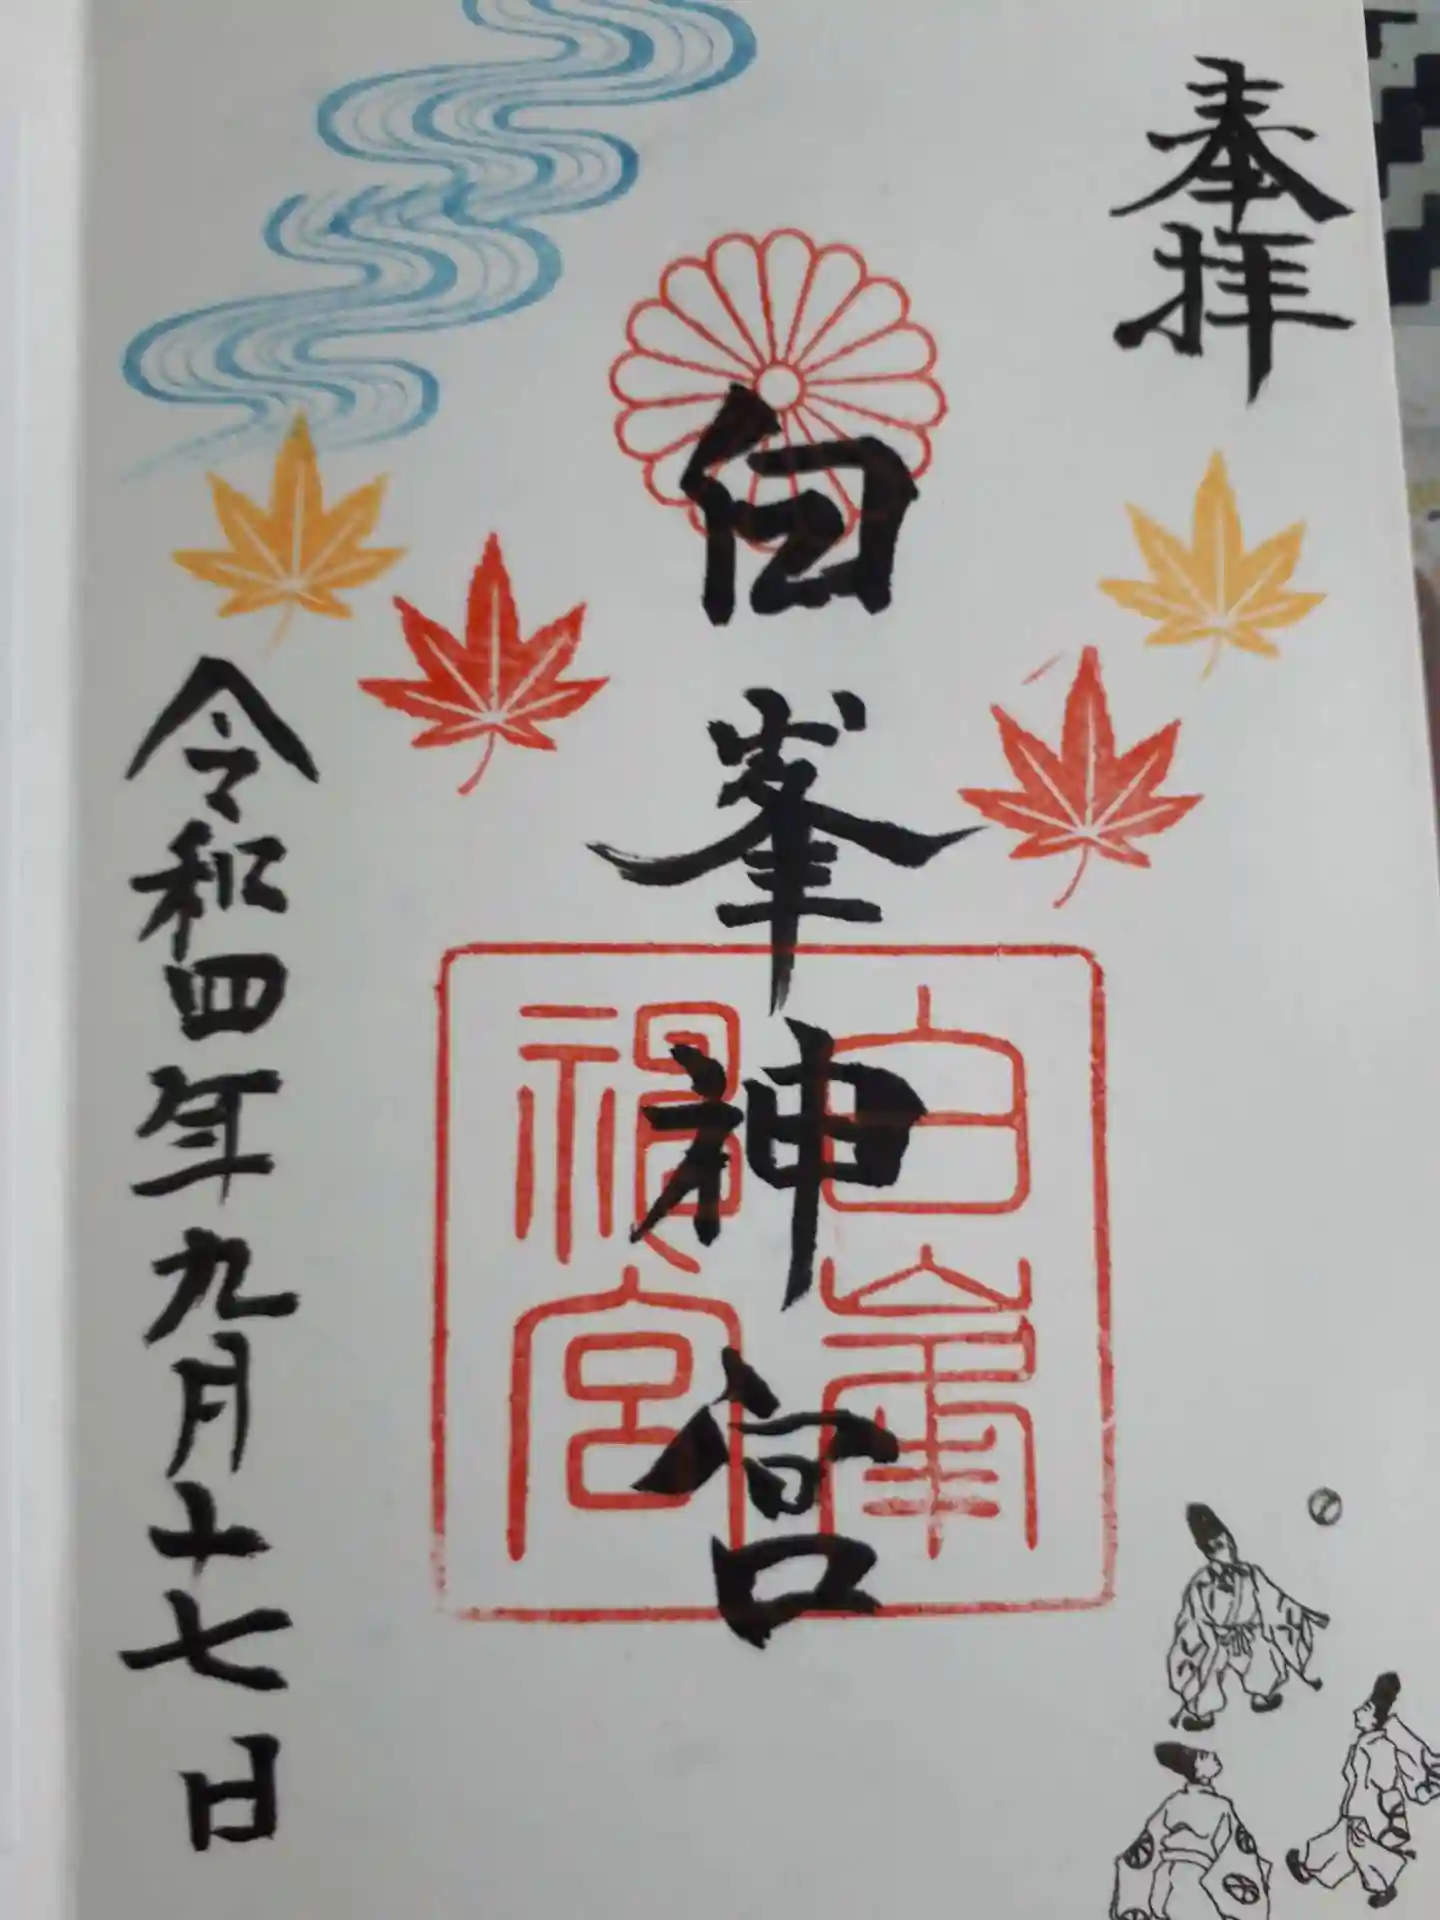 奉拝
白峯神宮
白峯神宮
令和四年九月十七日